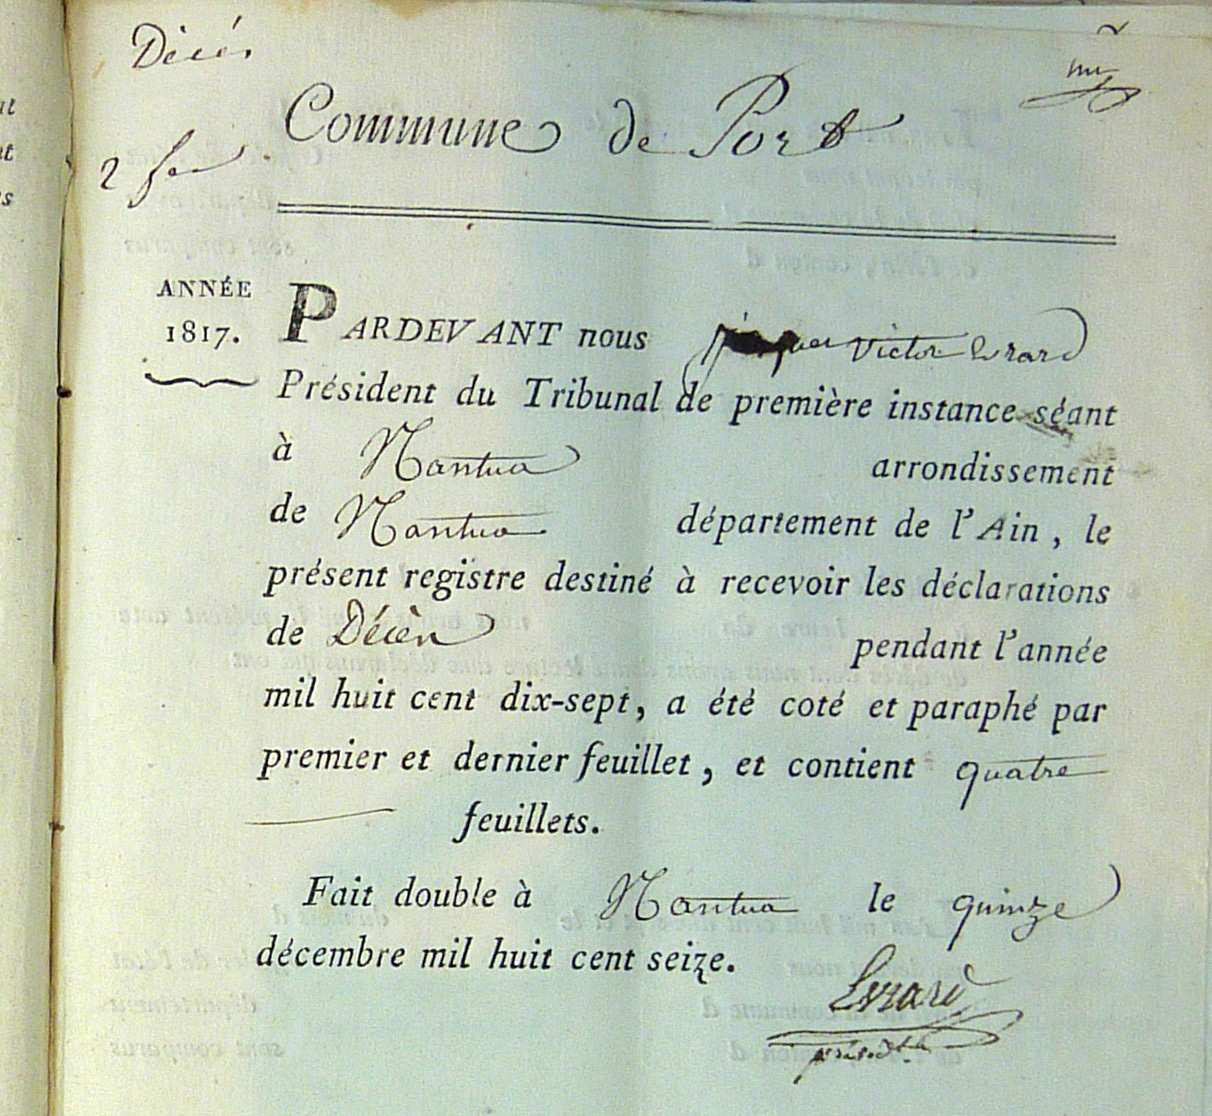 Décés
Commune de Port
2 f
ANNÉE
1817.
PARDEVANT nous Victor Evrard
Président du Tribunal de première instance séant
à Nantua arrondissement
de Nantua département de l'Ain, le
présent registre destiné à recevoir les déclarations
de Décès pendant l'année
mil huit cent dix-sept, a été coté et paraphé par
premier et dernier feuillet, et contient quatre
feuillets.
Fait double à Nantua le quinze
décembre mil huit cent seize.
Evrard
présidt